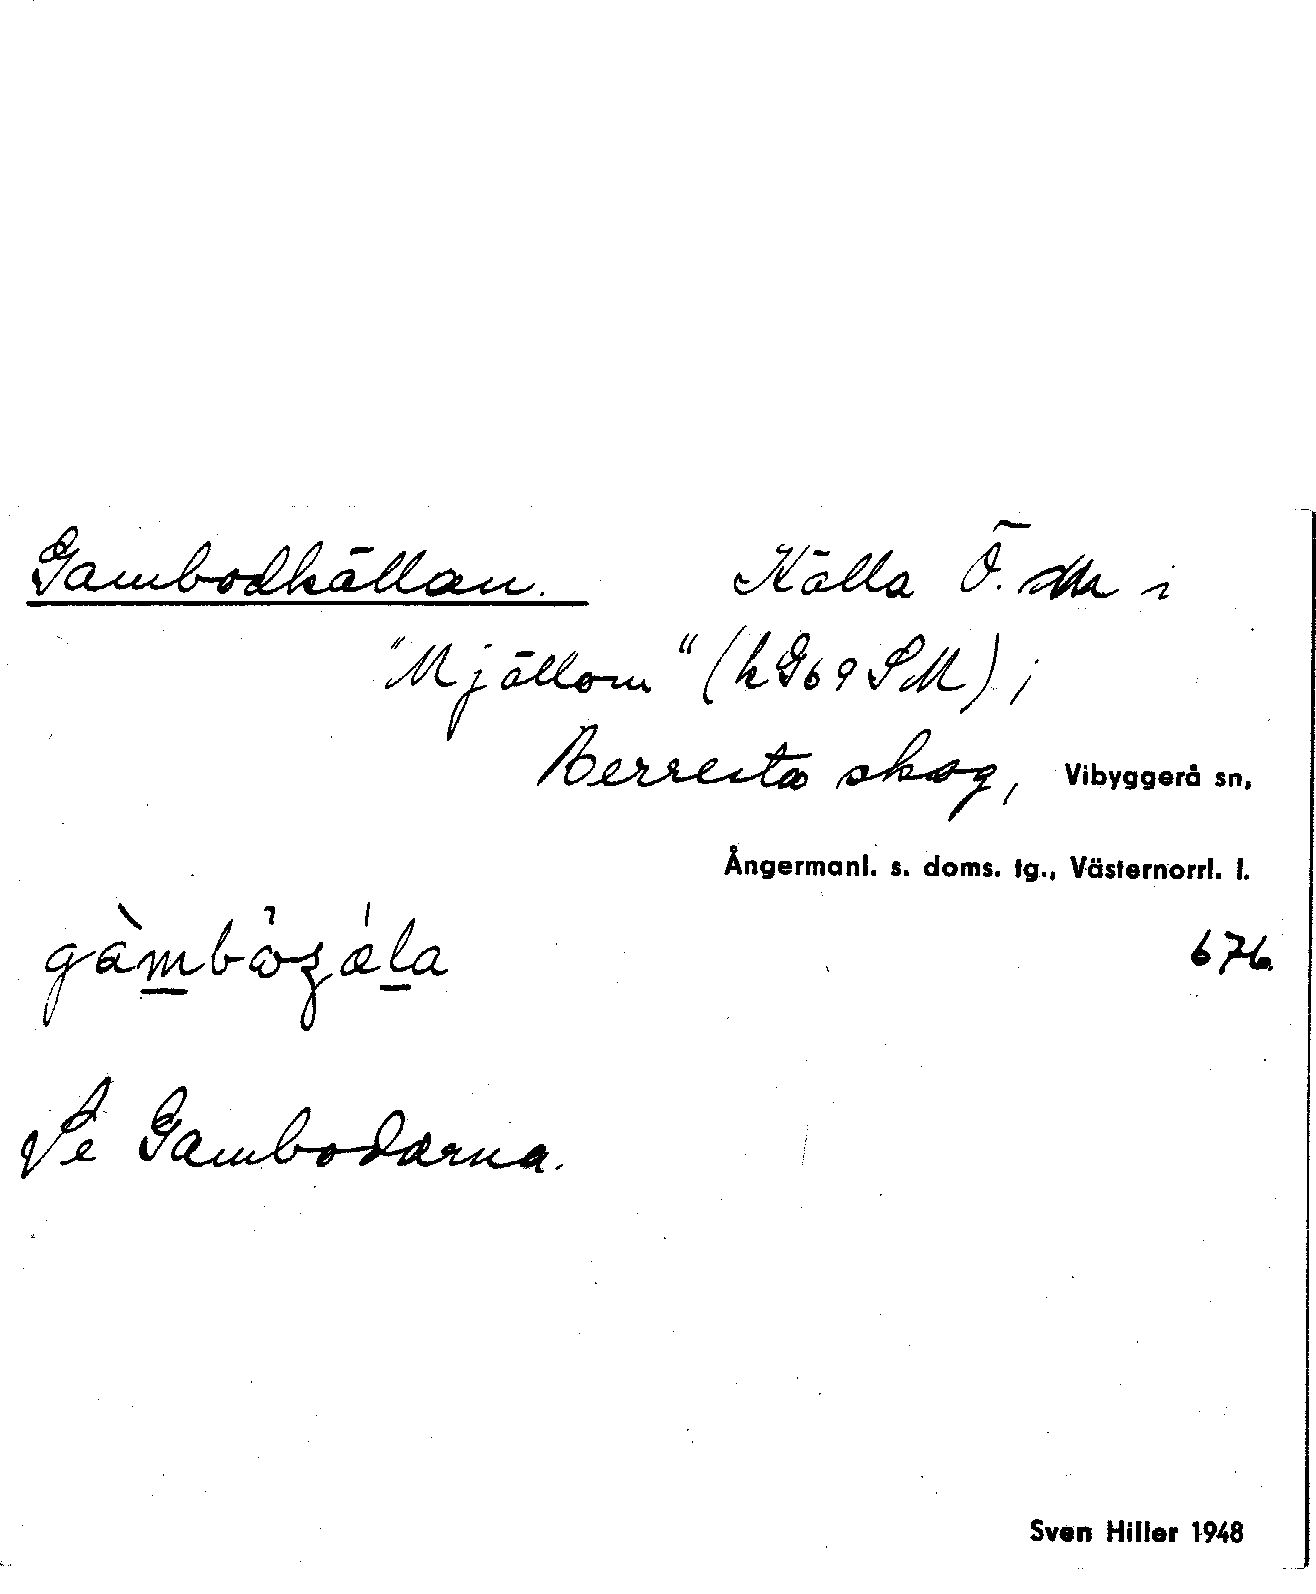 Gambodkällan. Källa Ö. om i
"Mjällom" (kG69SM);
Berresta skog, Vibyggerå sn,
Ångermanl. s. doms. tg., Västernorrl. l.
676
Se Gambodarna.
Sven Hiller 1948